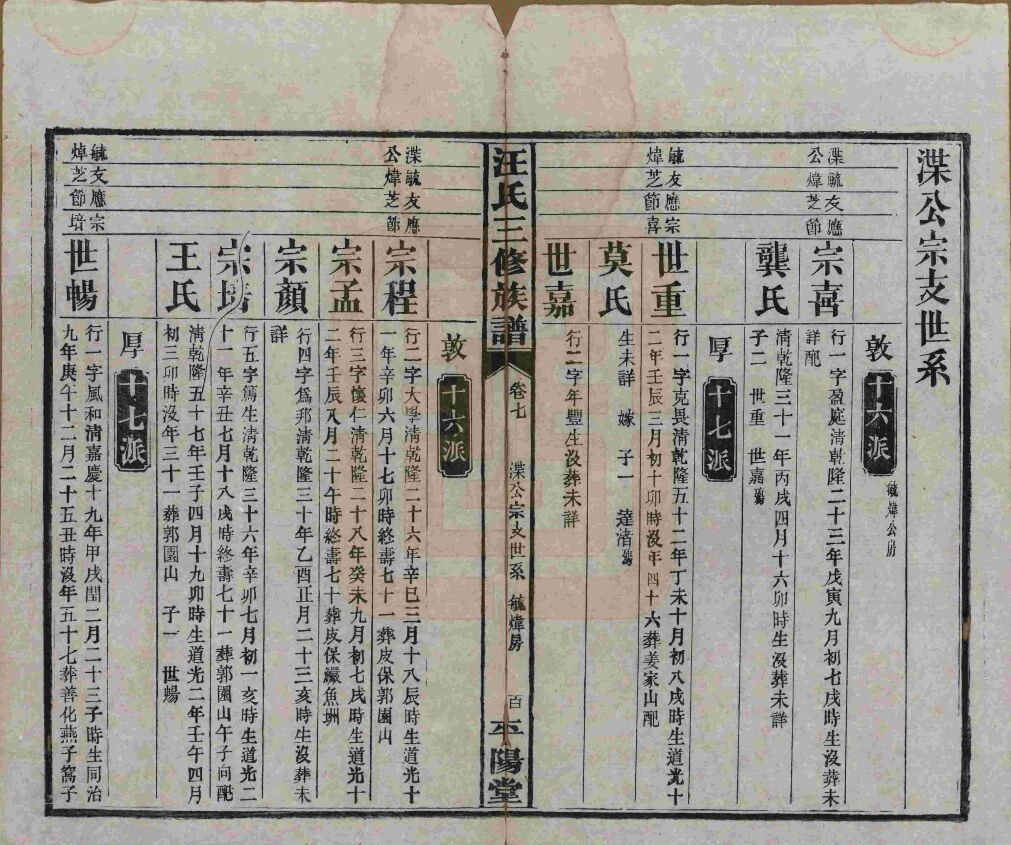 渫公宗支世系
敦
十六派
毓煒公房
渫毓友應
公煒芝節
宗喜
行一字盈庭淸乾隆二十三年戊寅九月初七戌時生沒葬未
詳配
龔氏
淸乾隆三十一年丙戌四月十六卯時生沒葬未詳
子二 世重 世嘉殤
厚
十七派
毓友應宗
煒芝節喜
世重
行一字克畏淸乾隆五十二年丁未十月初八戌時生道光十
二年壬辰三月初十卯時沒年四十六葬姜家山配
莫氏
生未詳 嫁 子一 達渚殤
世嘉
行二字年豐生沒葬未詳
汪氏三修族譜
卷七
渫公宗支世系 毓煒房
百
平陽堂
敦
十六派
渫毓友應
公煒芝節
宗程
行二字大學淸乾隆二十六年辛巳三月十八辰時生道光十
一年辛卯六月十七卯時終壽七十一葬皮保郭園山
宗孟
行三字懷仁淸乾隆二十八年癸未九月初七戌時生道光十
二年壬辰八月二十午時終壽七十葬皮保鱖魚洲
宗顏
行四字爲邦淸乾隆三十年乙酉正月二十三亥時生沒葬未
詳
宗培
行五字篤生淸乾隆三十六年辛卯七月初一亥時生道光二
十一年辛丑七月十八戌時終壽七十一葬郭園山午子向配
王氏
淸乾隆五十七年壬子四月十九卯時生道光二年壬午四月
初三卯時沒年三十一葬郭園山 子一 世暢
厚
十七派
毓友應宗
焯芝節培
世暢
行一字風和淸嘉慶十九年甲戌閏二月二十三子時生同治
九年庚午十二月二十五丑時沒年五十七葬善化燕子窩子